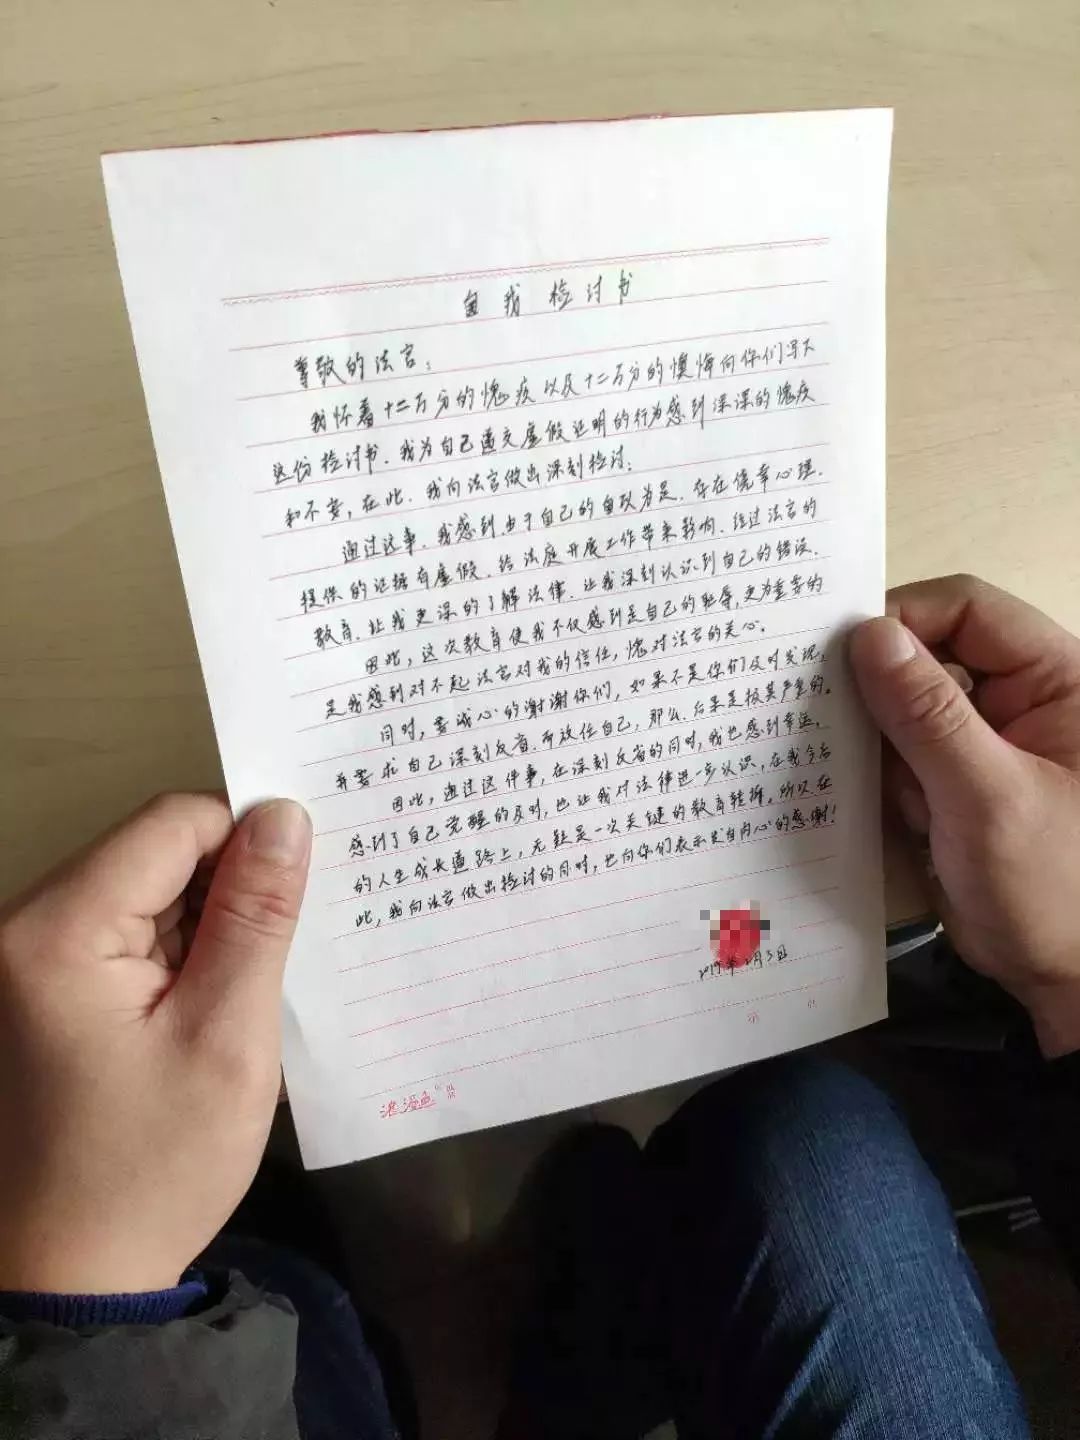 自我检讨书
尊敬的法官：
我怀着十二万分的愧疚以及十二万分的懊悔向你们写下
这份检讨书，我为自己递交虚假证明的行为感到深深的愧疚
和不安，在此，我向法官做出深刻检讨：
通过这事，我感到由于自己的自以为是，存在侥幸心理，
提供的证据有虚假，给法庭开展工作带来影响，经过法官的
教育，让我更深的了解法律，让我深刻认识到自己的错误。
因此，这次教育使我不仅感到是自己的耻辱，更为重要的
是我感到对不起法官对我的信任，愧对法官的关心。
同时，要诚心的谢谢你们，如果不是你们及时发现，
并要求自己深刻反省，而放任自己，那么，后果是极其严重的。
因此，通过这件事，在深刻反省的同时，我也感到幸运，
感到了自己觉醒的及时，也让我对法律进一步认识，在我今后
的人生成长道路上，无疑是一次关键的教育转捩，所以，在
此，我向法官做出检讨的同时，也向你们表示发自内心的感谢！
2019年 月3日
第 页